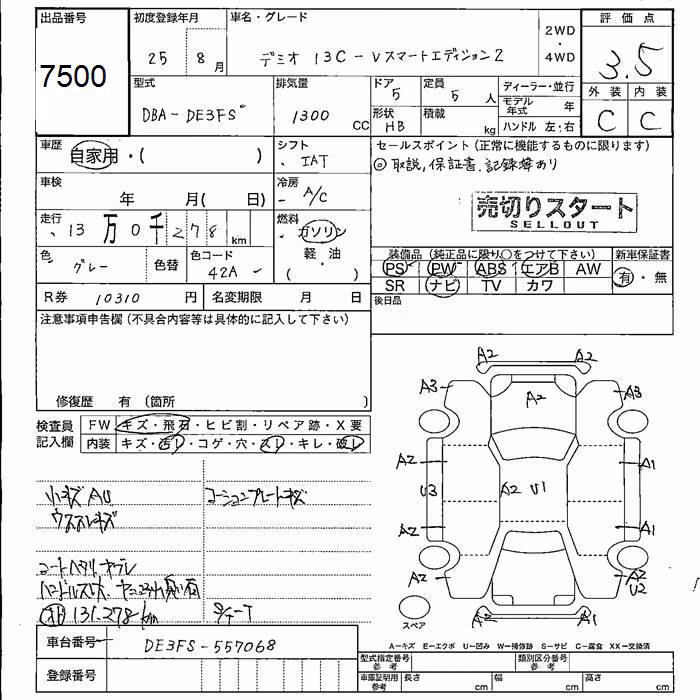 出品番号
7500
初度登録年月
25 8月
車名・グレード
デミオ 13C-Vスマートエディション2
2WD
・
4WD
評価点
3.5
外装 内装
C C
型式
DBA-DE3FS
排気量
1300 cc
ドア
5
形状
HB
定員
5 人
積載
kg
ディーラー・並行
モデル年式 年
ハンドル 左:右
車歴
自家用・( )
シフト
IAT
車検
年 月( 日)
冷房
A/C
走行
13万0千278 km
燃料
ガソリン
軽・油
( )
色
グレー
色替
色コード
42A
R券 10310 円
名変期限 月 日
セールスポイント (正常に機能するものに限ります)
◎取説,保証書.記録簿あり
売切りスタート
SELLOUT
装備品 (純正品に限り○をつけて下さい)
PS PW ABS エアB AW
SR ナビ TV カワ
新車保証書
有・無
後日品
注意事項申告欄 (不具合内容等は具体的に記入して下さい)
修復歴 有 (箇所 )
検査員
記入欄
FW キズ・飛石・ヒビ割・リペア跡・X要
内装 キズ・汚レ・コゲ・穴・スレ・キレ・破レ
小キズAU
コーションプレートキズ
ウススレキズ
131.278km
車台番号 DE3FS-557068
登録番号
A2 A2
A3 A2 A3
A2 A1
U3 A2 U1
A2 A1
A2 A2
U2
A2 A1
スペア
A-キズ E-エクボ U-凹み W-補修跡 S-サビ C-腐食 XX-交換済
型式指定番号
参考
類別区分番号
参考
車庫証明用
参考
長さ cm
幅 cm
高さ cm